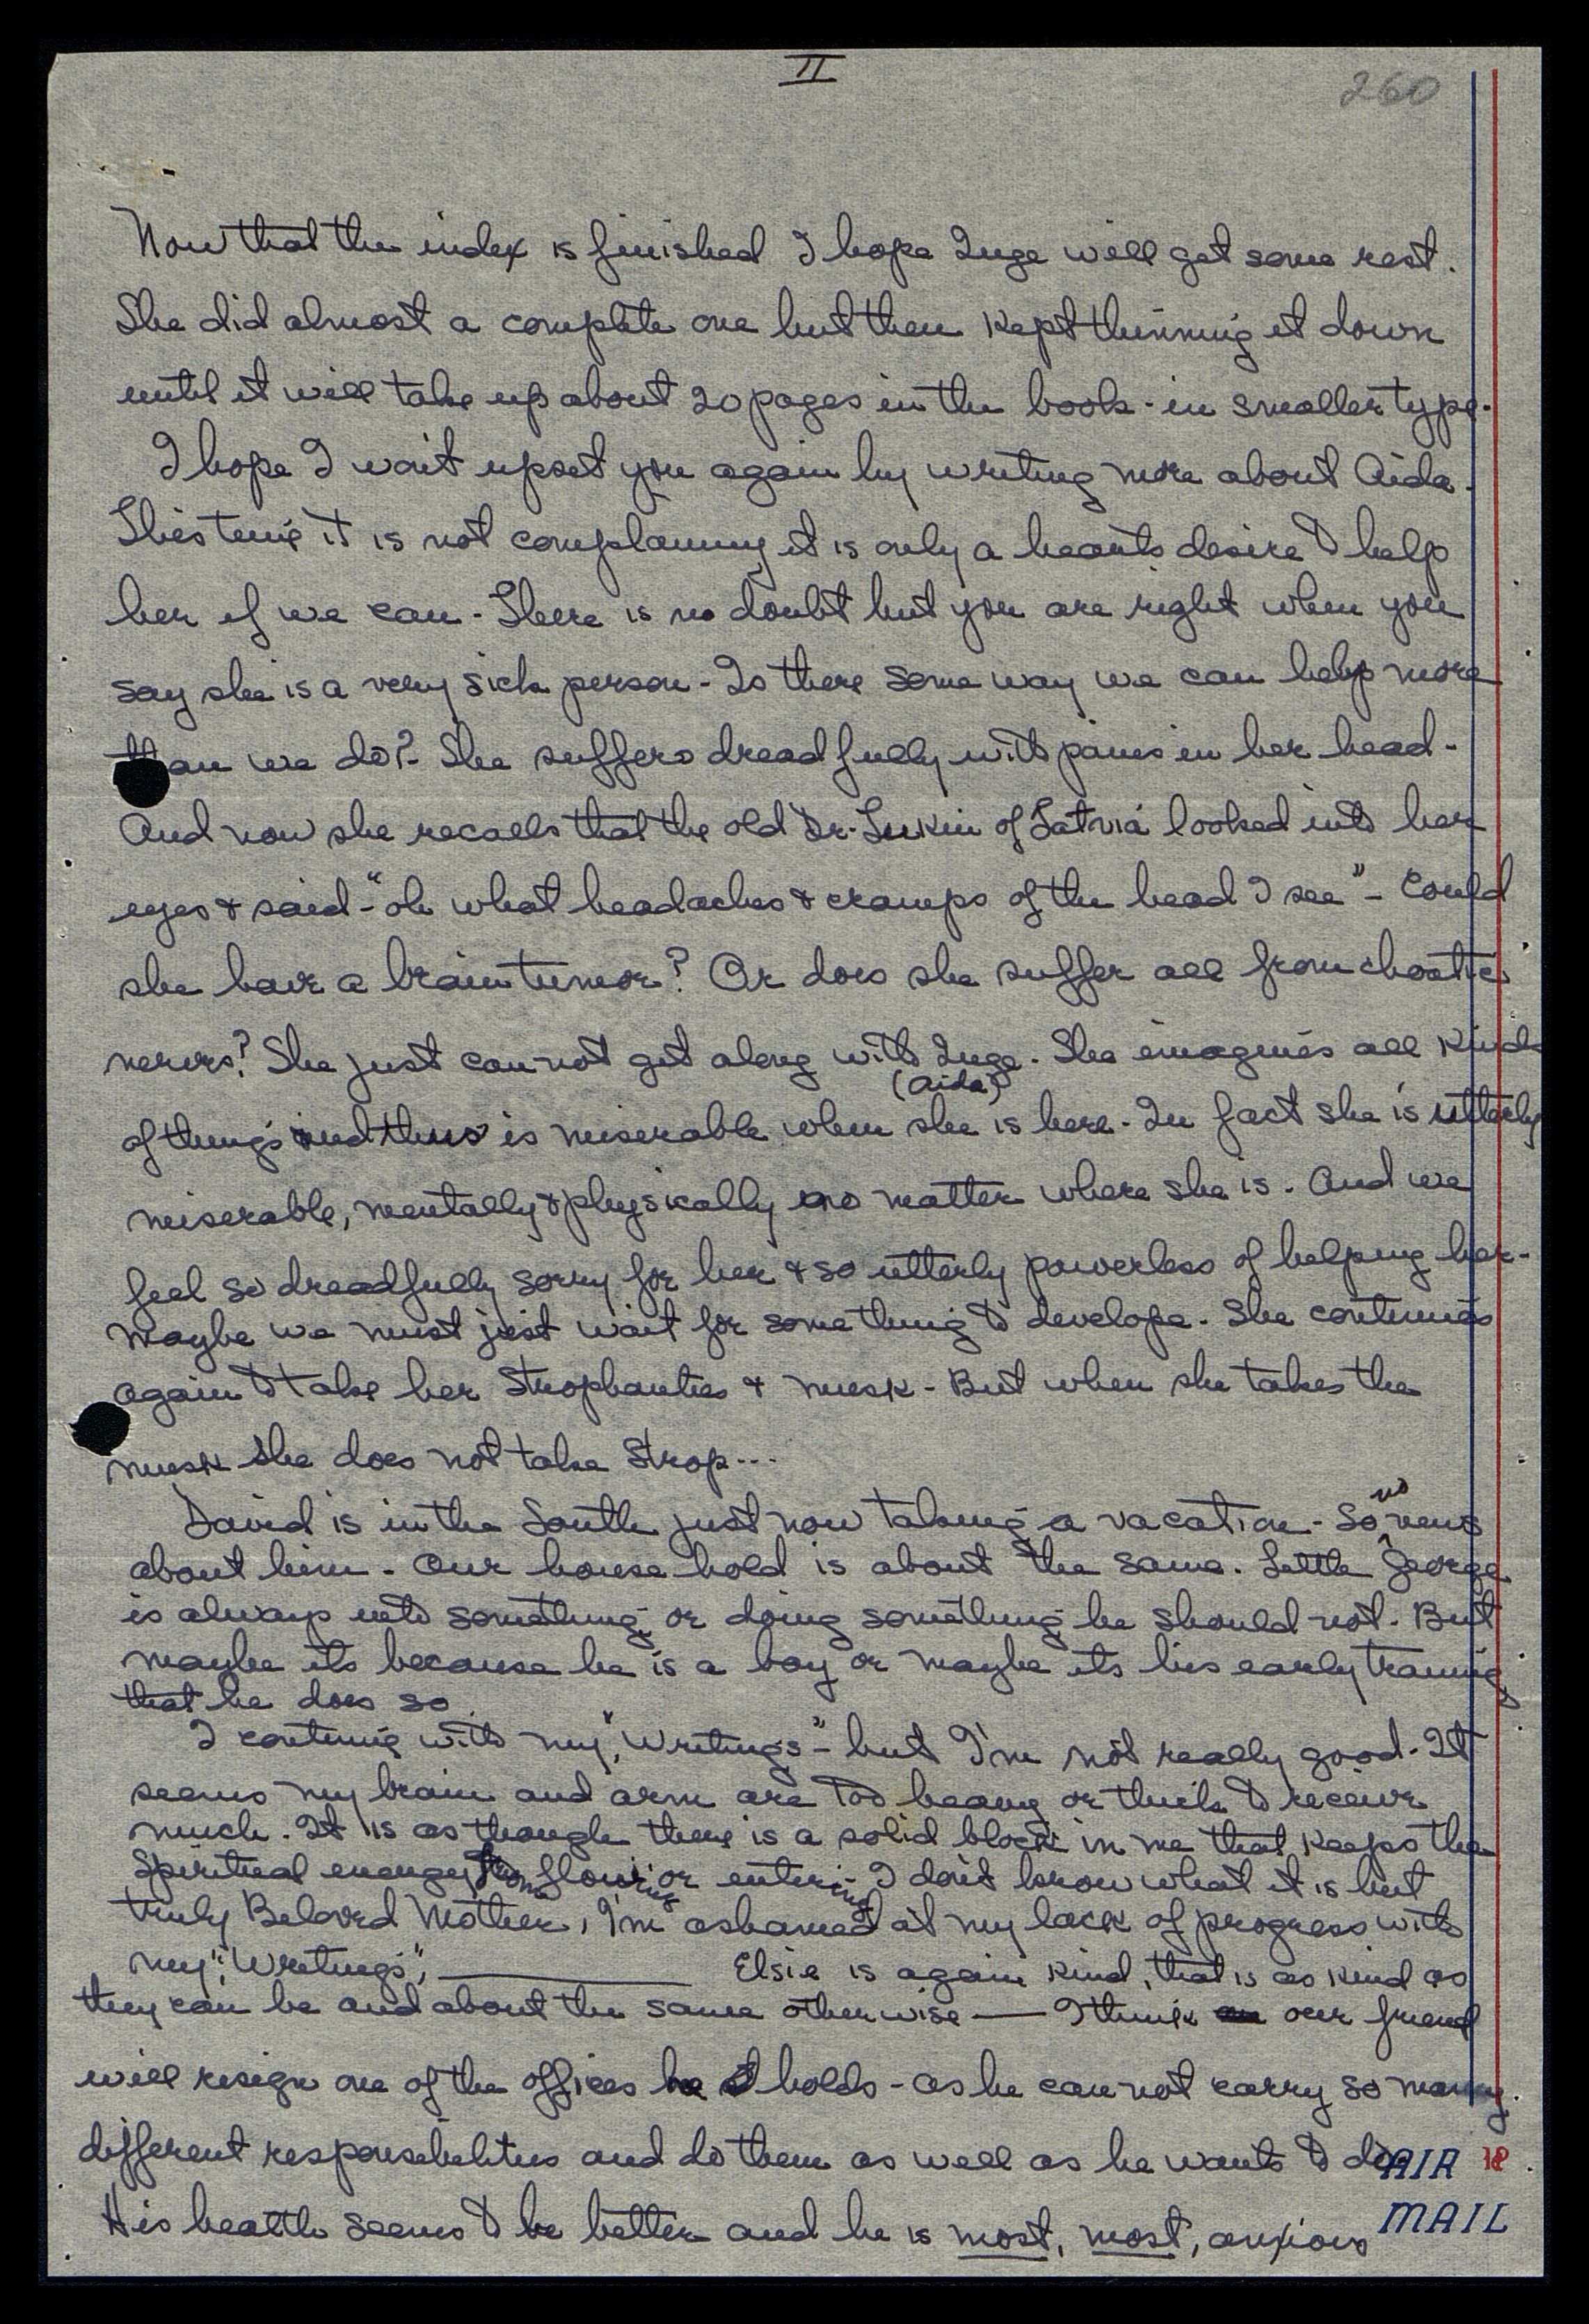 II
260
Now that the index is finished I hope Inge will get some rest.
She did almost a complete one but then kept thinning it down
until it will take up about 20 pages in the book - in smaller type.
I hope I won't upset you again by writing more about Aida.
This time it is not complaining it is only a hearts desire to help
her if we can - There is no doubt but you are right when you
say she is a very sick person - Is there some way we can help more
than we do? - She suffers dreadfully with pains in her head -
And now she recalls that the old Dr. Lukin of Latvia looked into her
eyes & said - "oh what headaches & cramps of the head I see" - Could
she have a brain tumor? Or does she suffer all from chaotic
nerves? She just can not get along with Inge. She imagines all kinds
(Aida)
of things and thus is miserable when she is here - In fact she is utterly
miserable, mentally & physically no matter where she is. And we
feel so dreadfully sorry for her & so utterly powerless of helping her -
Maybe we must just wait for something to develope. She continues
again to take her Strophantus & musk - But when she takes the
musk she does not take Strop...
David is in the South just now taking a vacation - So no news
about him. Our house hold is about the same. Little George
is always into something or doing something he should not. But
maybe its because he is a boy or maybe its his early training
that he does so.
I continue with my "Writings" - but I'm not really good. It
seems my brain and arm are too heavy or thick to receive
much. It is as though there is a solid block in me that keeps the
Spiritual energy from flowing or entering - I don't know what it is but
truly Beloved Mother, I'm ashamed at my lack of progress with
my "Writings", Elsie is again kind, that is as kind as
they can be and about the same otherwise — I think our friend
will resign one of the offices he holds - as he can not carry so many
different responsebilities and do them as well as he wants to do
His health seems to be better and he is most, most, anxious
AIR
MAIL